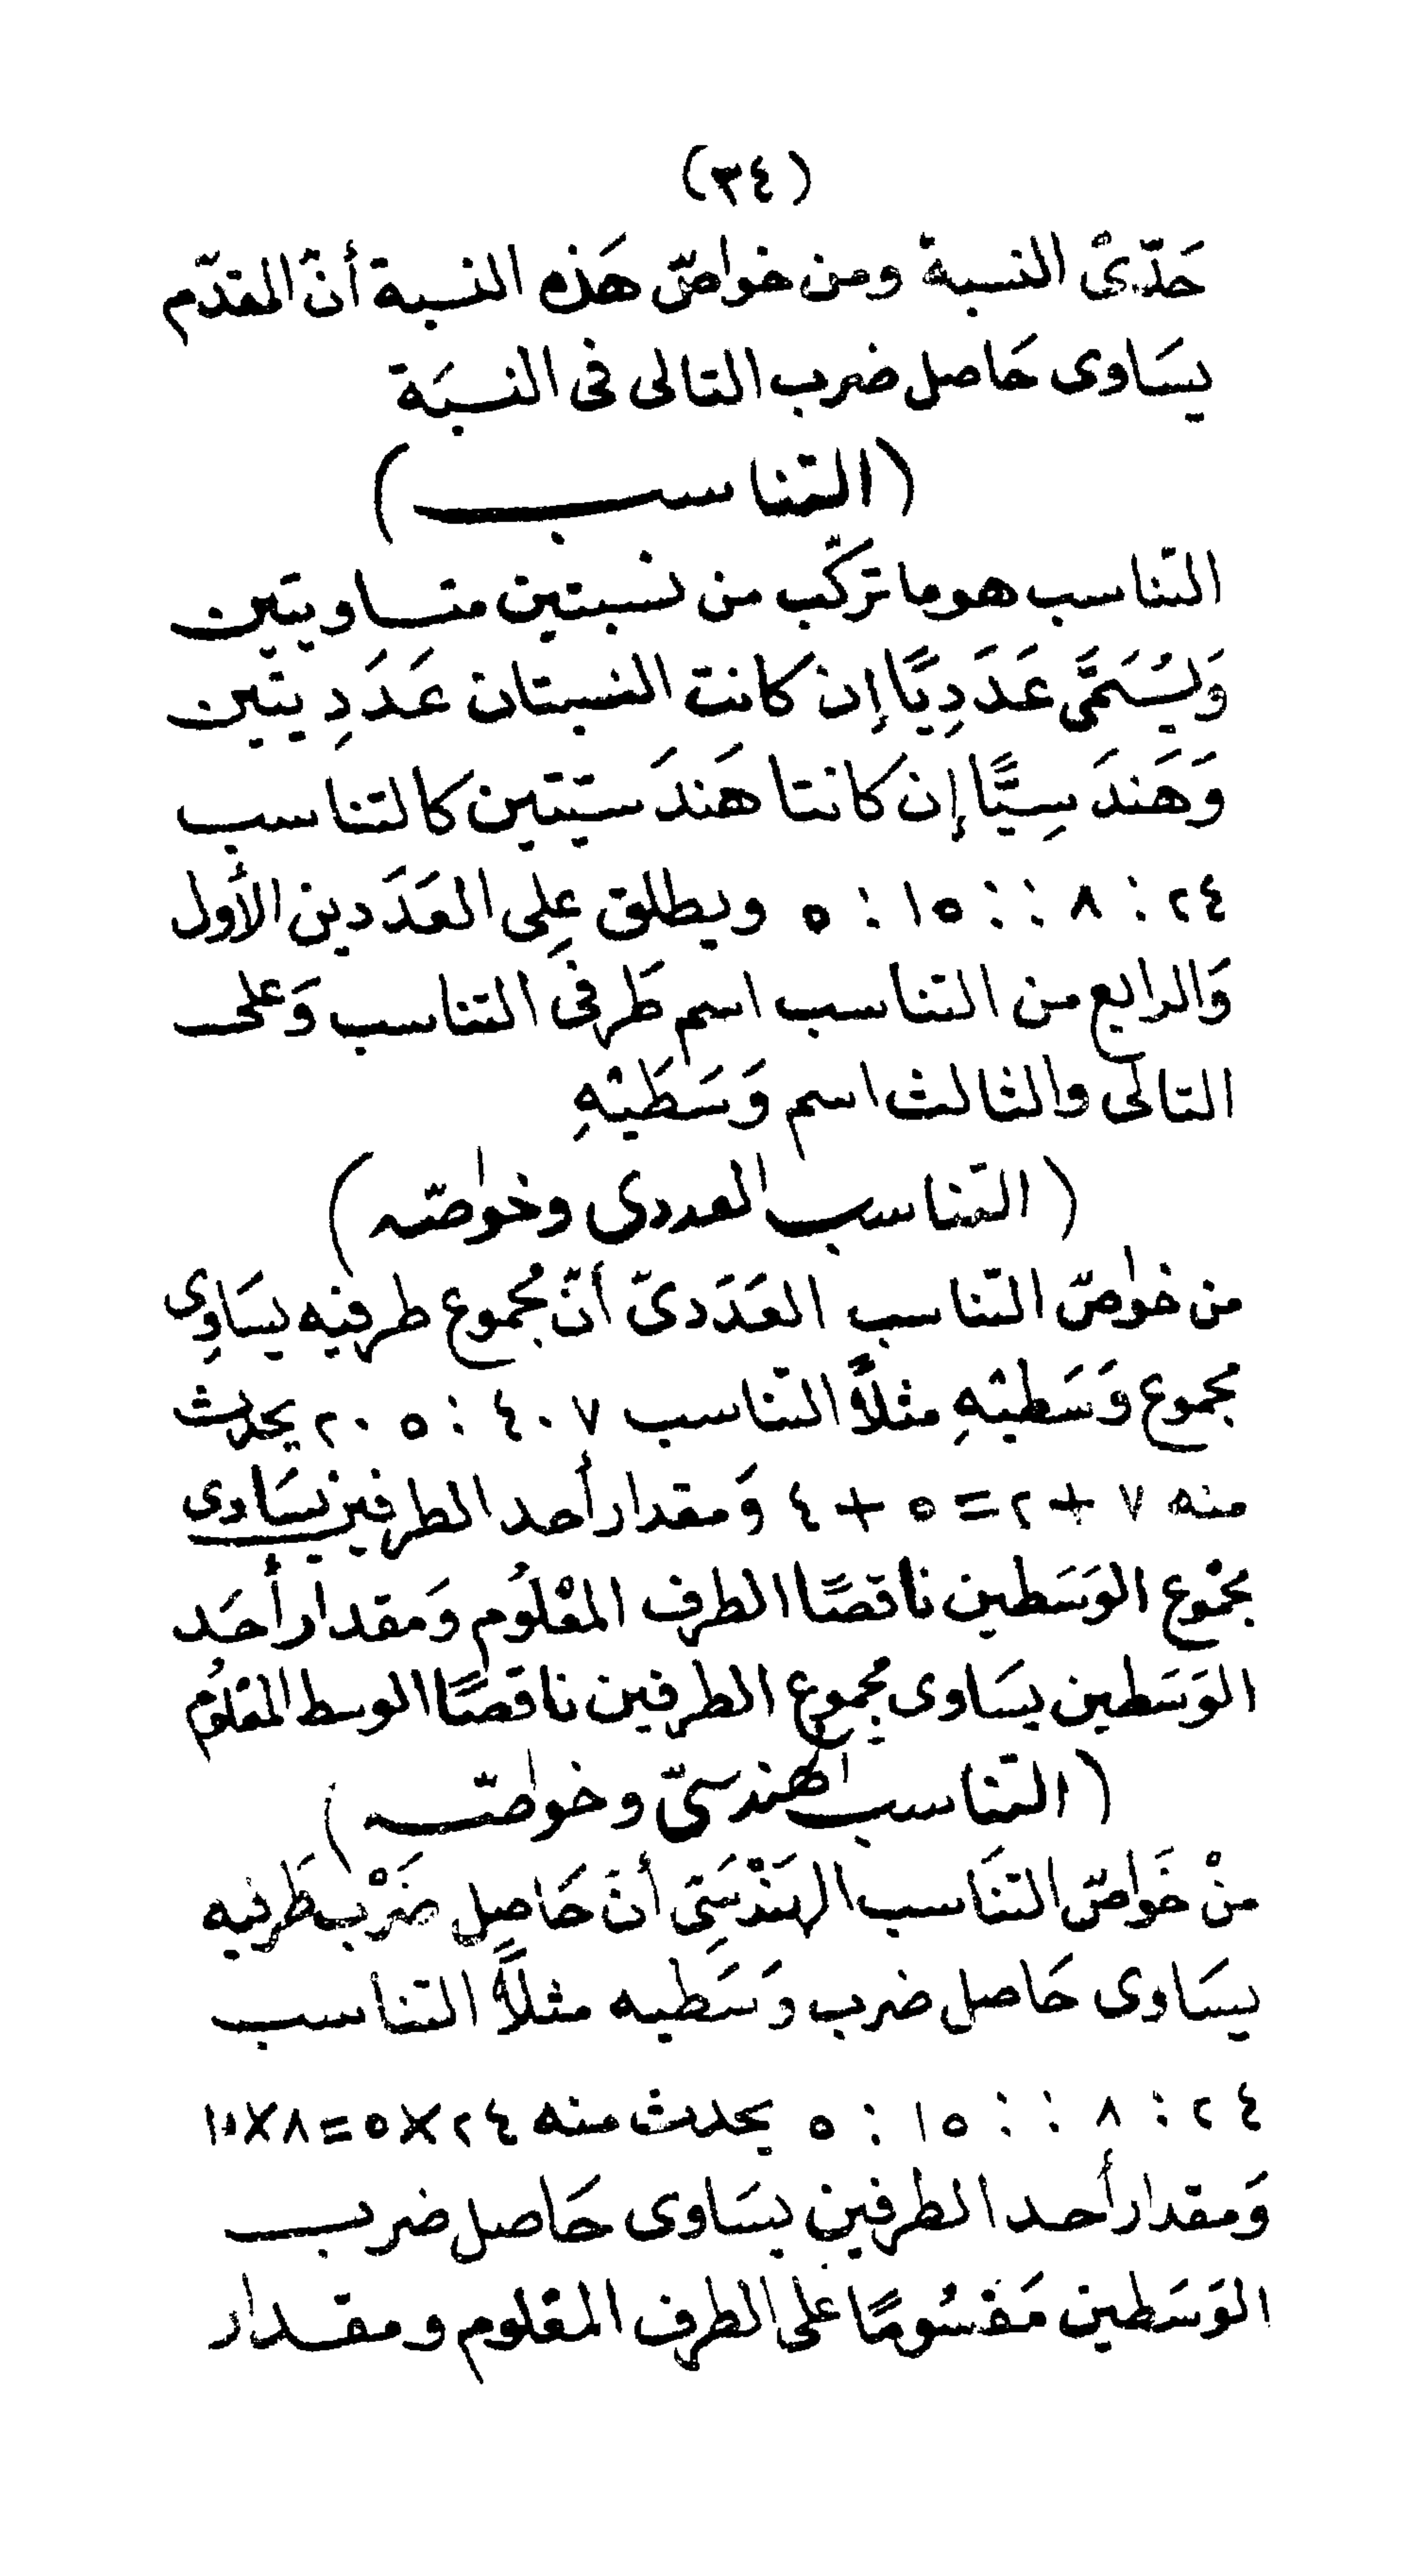 (٣٤)
حَدّىْ النسبة ومن خواصّ هَذه النسبة أنّ المقدّم
يسَاوى حَاصل ضرب التالى فى النسبَة
(التناسب)
التناسب هو ما تركّب من نسبتين متساويتين
وَيُسَمَّى عَدَدِيًّا إن كانت النسبتان عَدَدِيتين
وَهَندَسِيًّا إن كانتا هَندَسيّتين كالتناسب
٢٤ : ٨ :: ١٥ : ٥ ويطلق على العَدَدين الأول
وَالرابع من التناسب اسم طَرفى التناسب وَعلى
التالى والثالث اسم وَسَطَيْهِ
(التناسب العددى وخواصّه)
من خواصّ التّناسب العَدَدىّ أنّ مجموع طرفيه يسَاوِى
مجموع وَسَطيْهِ مثلاً التّناسب ٧ . ٤ : ٥ . ٢ يحدث
منه ٧ + ٢ = ٥ + ٤ وَمقدار أحد الطرفين يسَاوى
مجموع الوَسَطين ناقصًا الطرف المعْلوُم وَمقدار أحَد
الوَسَطين يسَاوى مجموع الطرفين ناقصًا الوسط المعْلوُم
(التناسب الهندسىّ وخواصّه)
منْ خَواصّ التنَاسب الهَنْدَسِىّ أنّ حَاصِل ضَرْب طَرفيه
يسَاوى حَاصل ضرب وَسَطيه مثلاً التناسب
٢٤ : ٨ :: ١٥ : ٥ يحدث منه ٢٤ × ٥ = ٨ × ١٥
وَمقدار أحد الطرفين يسَاوى حَاصل ضرب
الوَسَطين مَقسُومًا على الطرف المعْلوم ومقدار